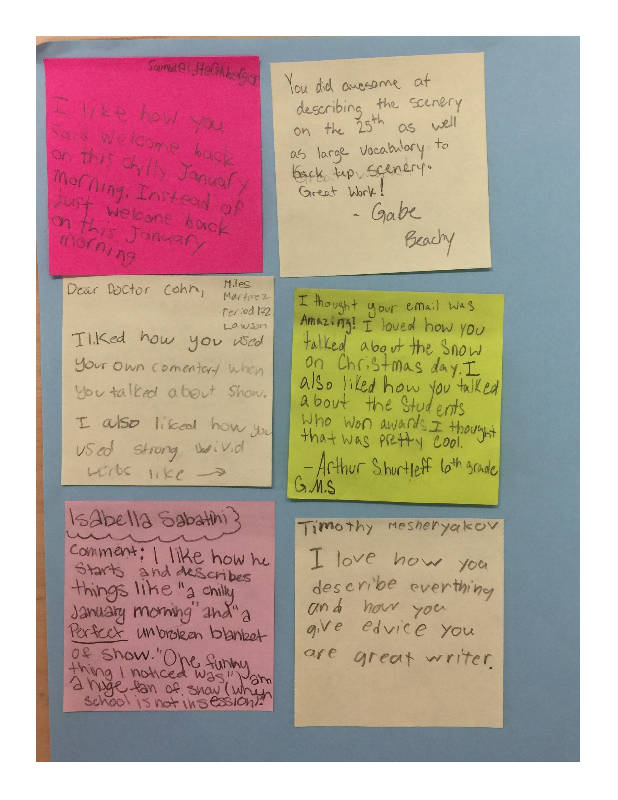 I like how you
said welcome back
on this chilly January
morning. Instead of
just welcome back
on this January
morning
You did awesome at
describing the scenery
on the 25th as well
as large vocabulary to
back up scenery.
Great Work!
- Gabe
Beachy
Dear Doctor Cohn,
Miles
Martinez
Period 1-2
Lawson
I liked how you used
your own comentary when
you talked about snow.
I also liked how you
used strong
verbs like →
I thought your email was
Amazing! I loved how you
talked about the Snow
on Christmas day. I
also liked how you talked
about the Students
who won awards I thought
that was pretty cool.
- Arthur Shurtleff 6th grade
G.M.S
Isabella Sabatini
Comment: I like how he
starts and describes
things like "a chilly
January morning" and "a
Perfect unbroken blanket
of snow." One funny
thing I noticed was "I am
a huge fan of snow (when
school is not in session)."
Timothy Mesheryakov
I love how you
describe everthing
and how you
give edvice you
are great writer.